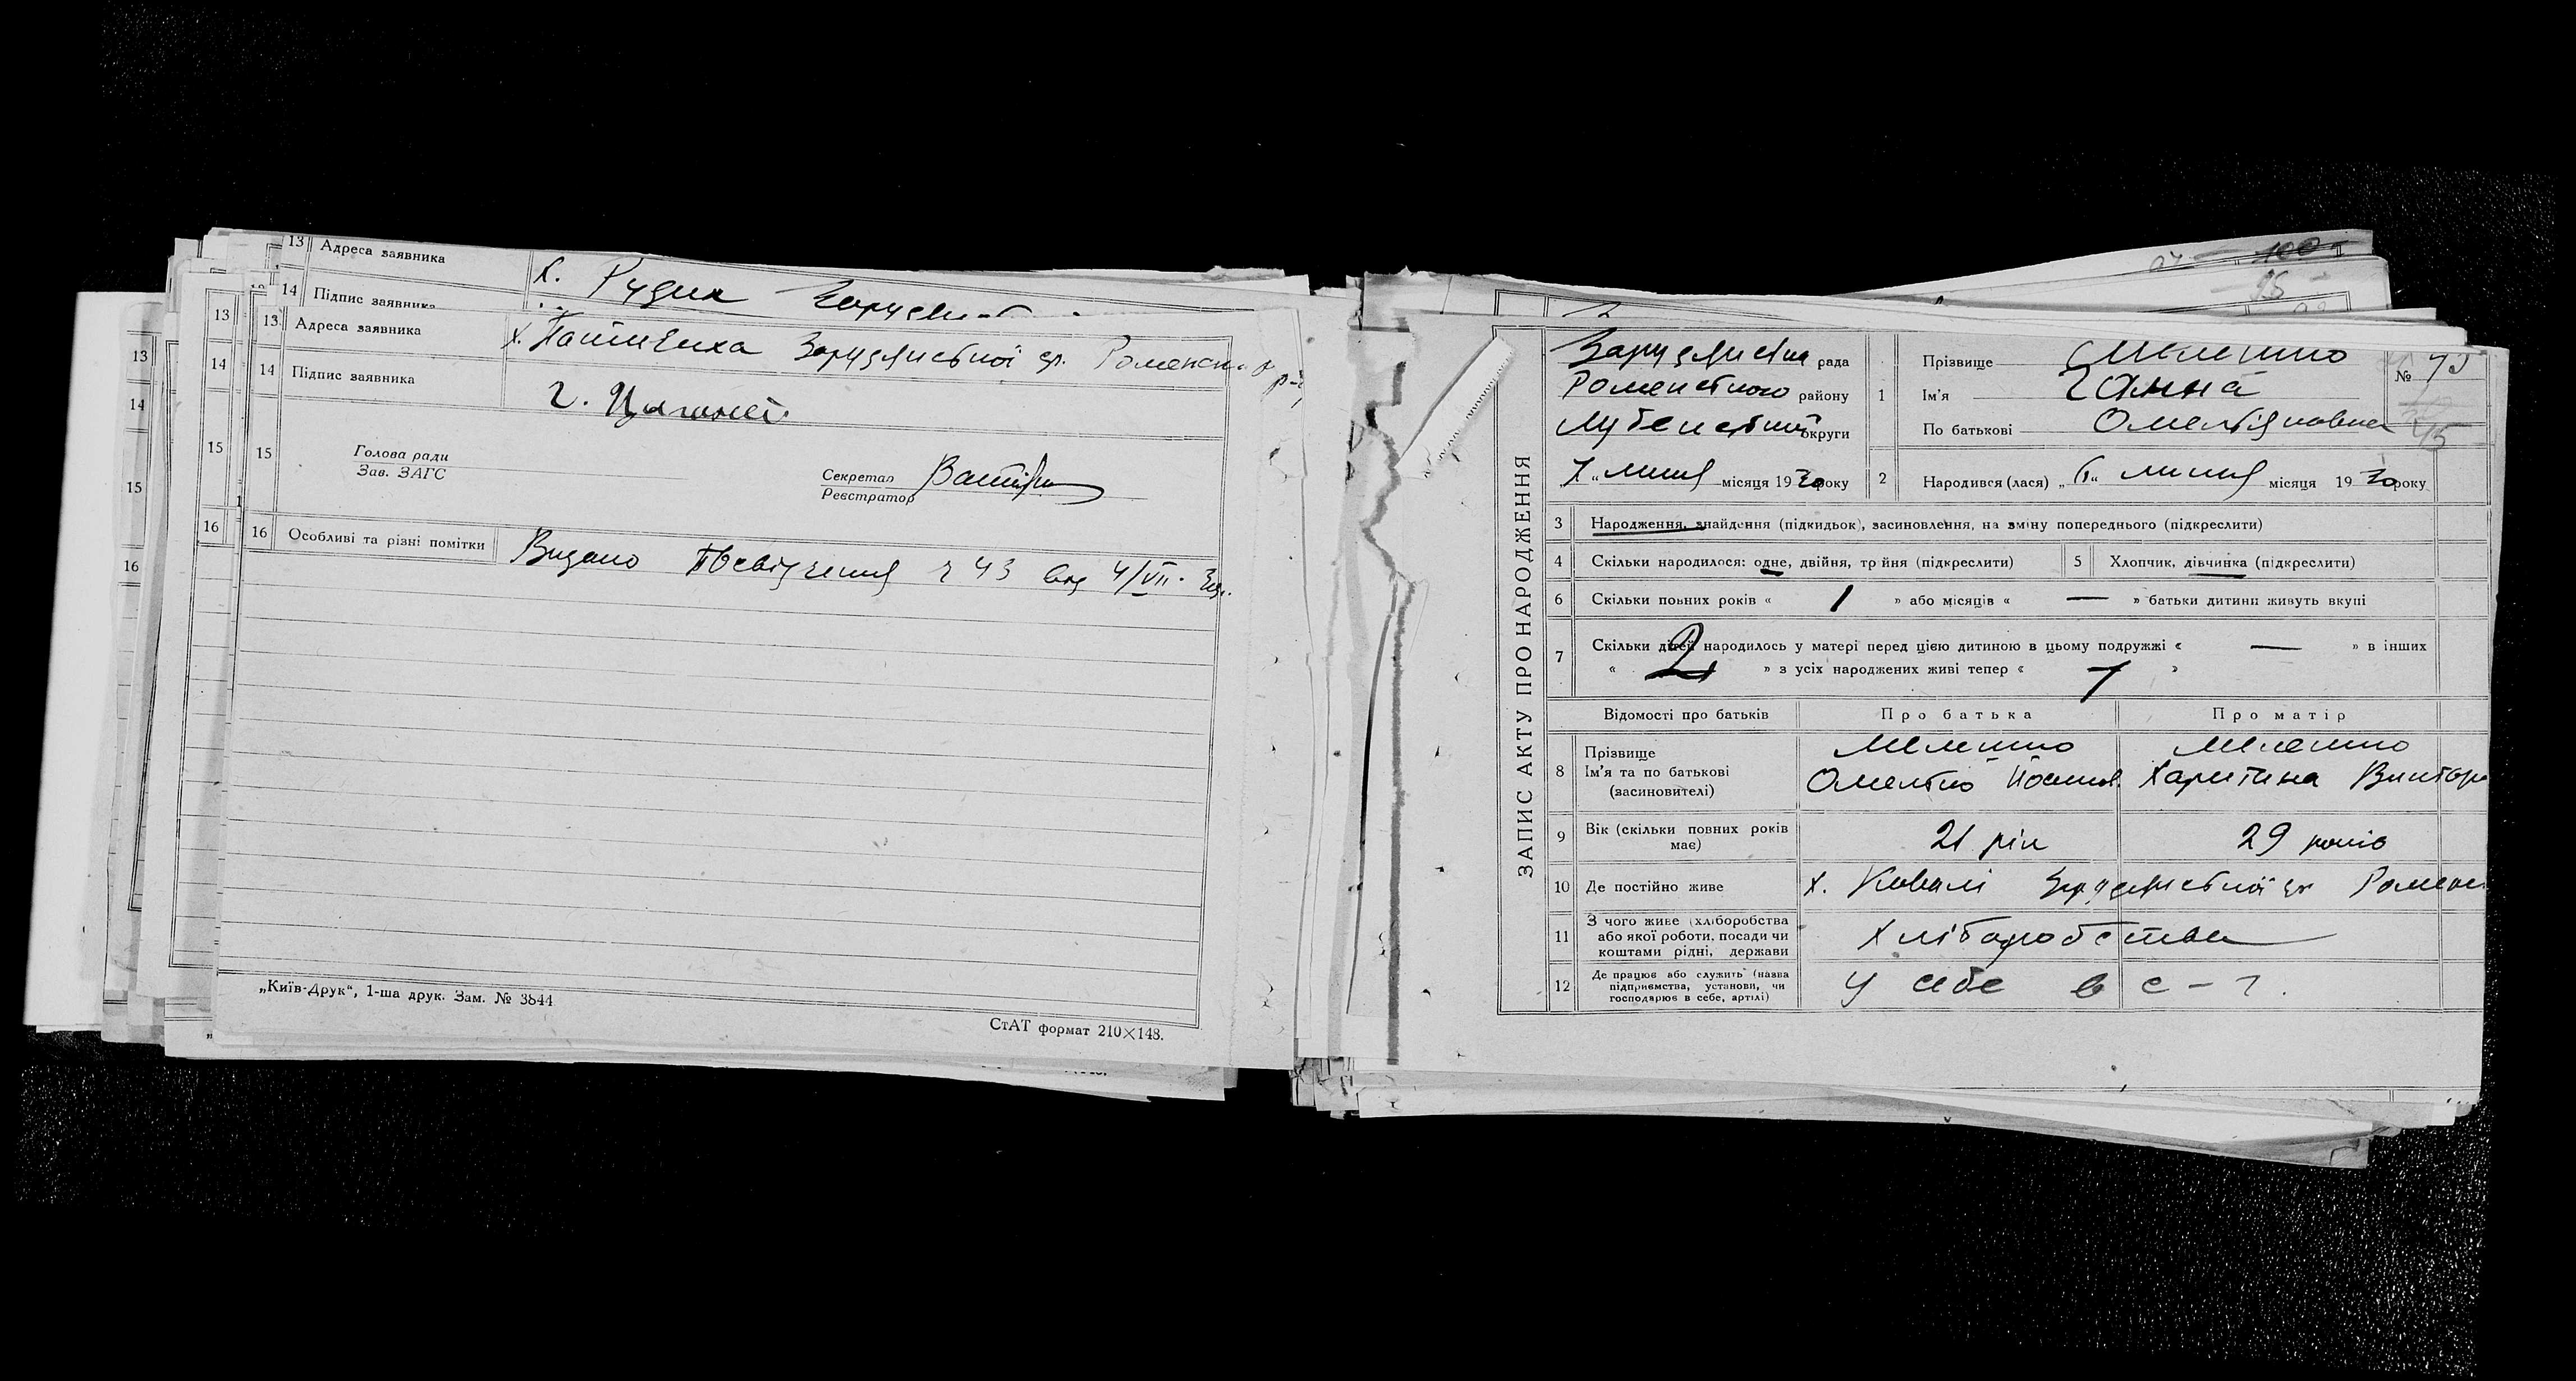 13 Адреса заявника х. Рудик
14 Підпис заявника
13 13 Адреса заявника х. Заруднистої Роменськ
14 14 Підпис заявника Г.
15 15 Голова ради
Зав. ЗАГС
Секретар
Реєстратор
16 16 Особливі та різні помітки Видано Посвідчення ч 43 від 4/VII
13
14
15
16
„Київ-Друк“, 1-ша друк. Зам. № 3844
СтАТ формат 210×148.
100
ЗАПИС АКТУ ПРО НАРОДЖЕННЯ
рада
Роменського району
Лубенської округи
„7“ липня місяця 1930 року
1 Прізвище
Ім'я Ганна
По батькові Омелянівна
№
45
2 Народився (лася) „ “ липня місяця 1930 року
3 Народження, знайдення (підкидьок), засиновлення, на зміну попереднього (підкреслити)
4 Скільки народилося: одне, двійня, тройня (підкреслити) 5 Хлопчик, дівчинка (підкреслити)
6 Скільки повних років « 1 » або місяців « — » батьки дитини живуть вкупі
7 Скільки дітей народилось у матері перед цією дитиною в цьому подружжі « — » в інших
« 2 » з усіх народжених живі тепер « 1 »
Відомості про батьків Про батька Про матір
8 Прізвище
Ім'я та по батькові Омелько Йосипов. Харитина Виктор
(засновителі)
9 Вік (скільки повних років має) 21 рік 29 років
10 Де постійно живе х. Ковалі Ромен
11 З чого живе (хліборобства або якої роботи, посади чи коштами рідні, держави Хліборобства
12 Де працює або служить (назва підприємства, установи, чи господарює в себе, артілі) У себе в с-г.